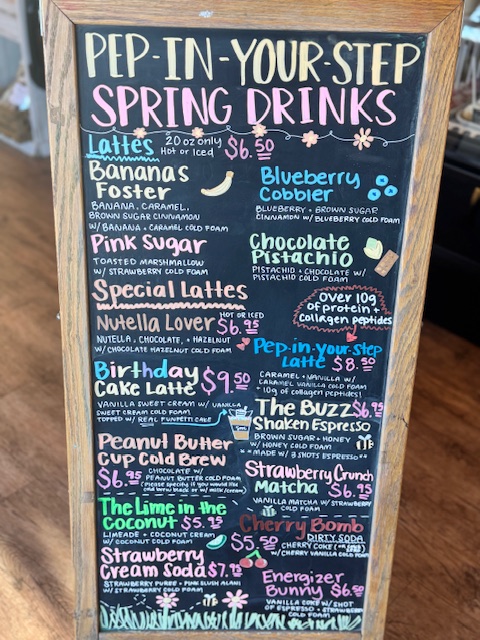 PEP-IN-YOUR-STEP
SPRING DRINKS
Lattes 20 oz only Hot or Iced $6.50
Bananas Foster
BANANA, CARAMEL,
BROWN SUGAR CINNAMON
W/ BANANA + CARAMEL COLD FOAM
Blueberry Cobbler
BLUEBERRY + BROWN SUGAR
CINNAMON W/ BLUEBERRY COLD FOAM
Pink Sugar
TOASTED MARSHMALLOW
W/ STRAWBERRY COLD FOAM
Chocolate Pistachio
PISTACHIO + CHOCOLATE W/
PISTACHIO COLD FOAM
Special Lattes
Over 10g
of protein +
collagen peptides
Nutella Lover HOT OR ICED $6.95
NUTELLA, CHOCOLATE, + HAZELNUT
W/CHOCOLATE HAZELNUT COLD FOAM
Pep-in-your-step
Latte $8.50
CARAMEL + VANILLA W/
CARAMEL VANILLA COLD FOAM
+ 10g of collagen peptides!
Birthday
Cake Latte $9.50
VANILLA SWEET CREAM W/ VANILLA
SWEET CREAM COLD FOAM
TOPPED W/ REAL FUNFETTI CAKE
The Buzz $6.95
Shaken Espresso
BROWN SUGAR + HONEY
W/ HONEY COLD FOAM
**MADE W/ 3 SHOTS ESPRESSO**
Peanut Butter
Cup Cold Brew
$6.95 CHOCOLATE W/
PEANUT BUTTER COLD FOAM
(Please specify if you would like
cold brew black or w/ milk/cream)
Strawberry Crunch
Matcha $6.95
VANILLA MATCHA W/ STRAWBERRY
COLD FOAM
The Lime in the
Coconut $5.95
LIMEADE + COCONUT CREAM
W/ COCONUT COLD FOAM
Cherry Bomb
$5.50 DIRTY SODA
CHERRY COKE (OR
W/ CHERRY VANILLA COLD FOAM
Strawberry
Cream Soda $7.75
STRAWBERRY PUREE + PINK SLUSH ALANI
W/ STRAWBERRY COLD FOAM
Energizer
Bunny $6.50
VANILLA COKE W/ SHOT
OF ESPRESSO + STRAWBERRY
COLD FOAM